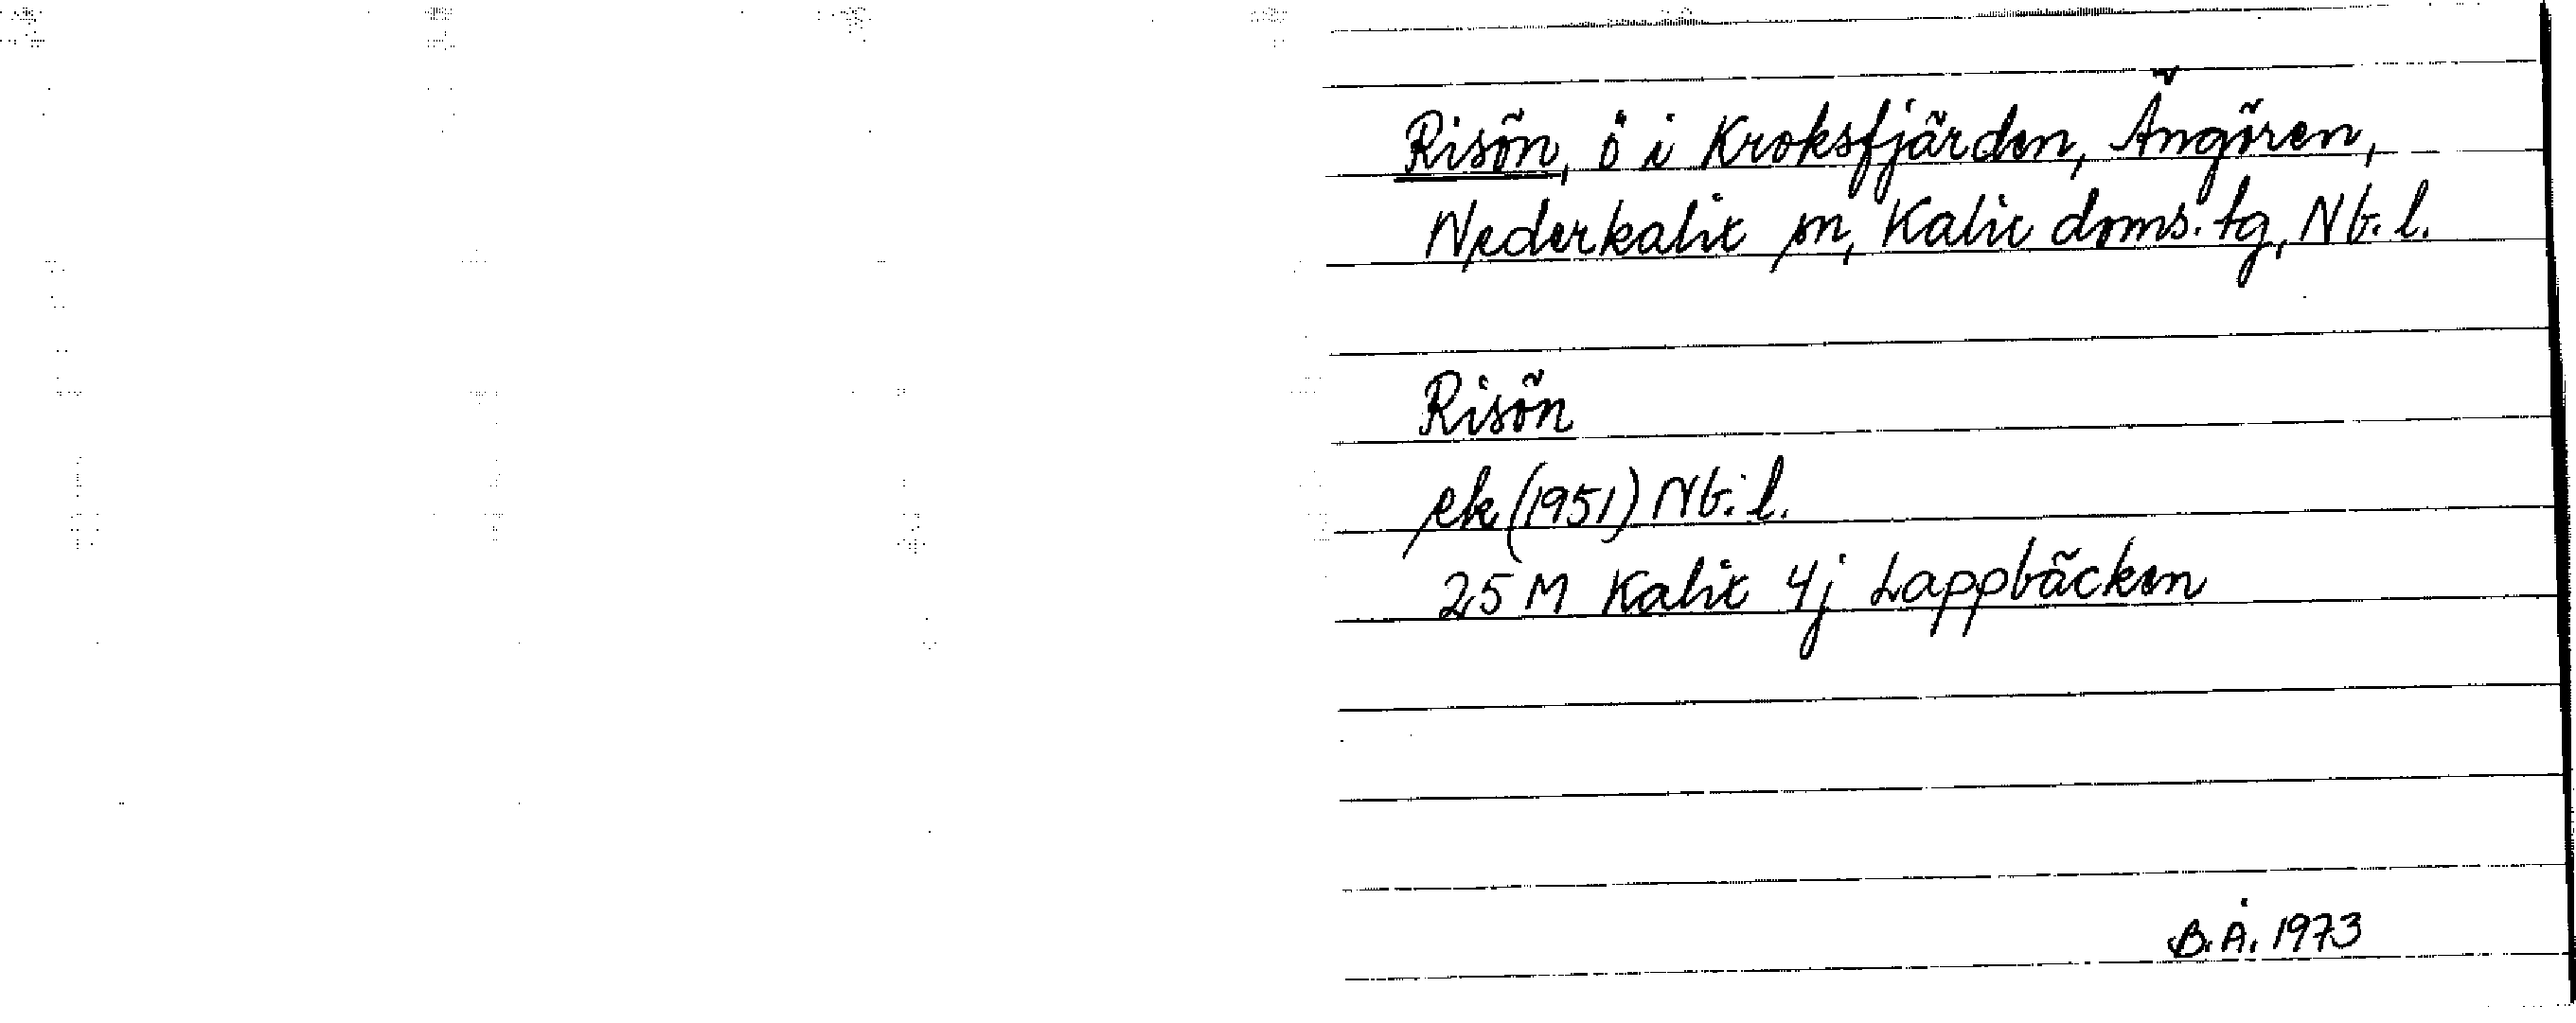 Risön, ö i Kroksfjärden, Ängören,
Nederkalix sn, Kalix doms. tg, Nb. l.
Risön
ek (1951) Nb. l.
25 M Kalix 4j Lappbäcken
B.Å. 1973